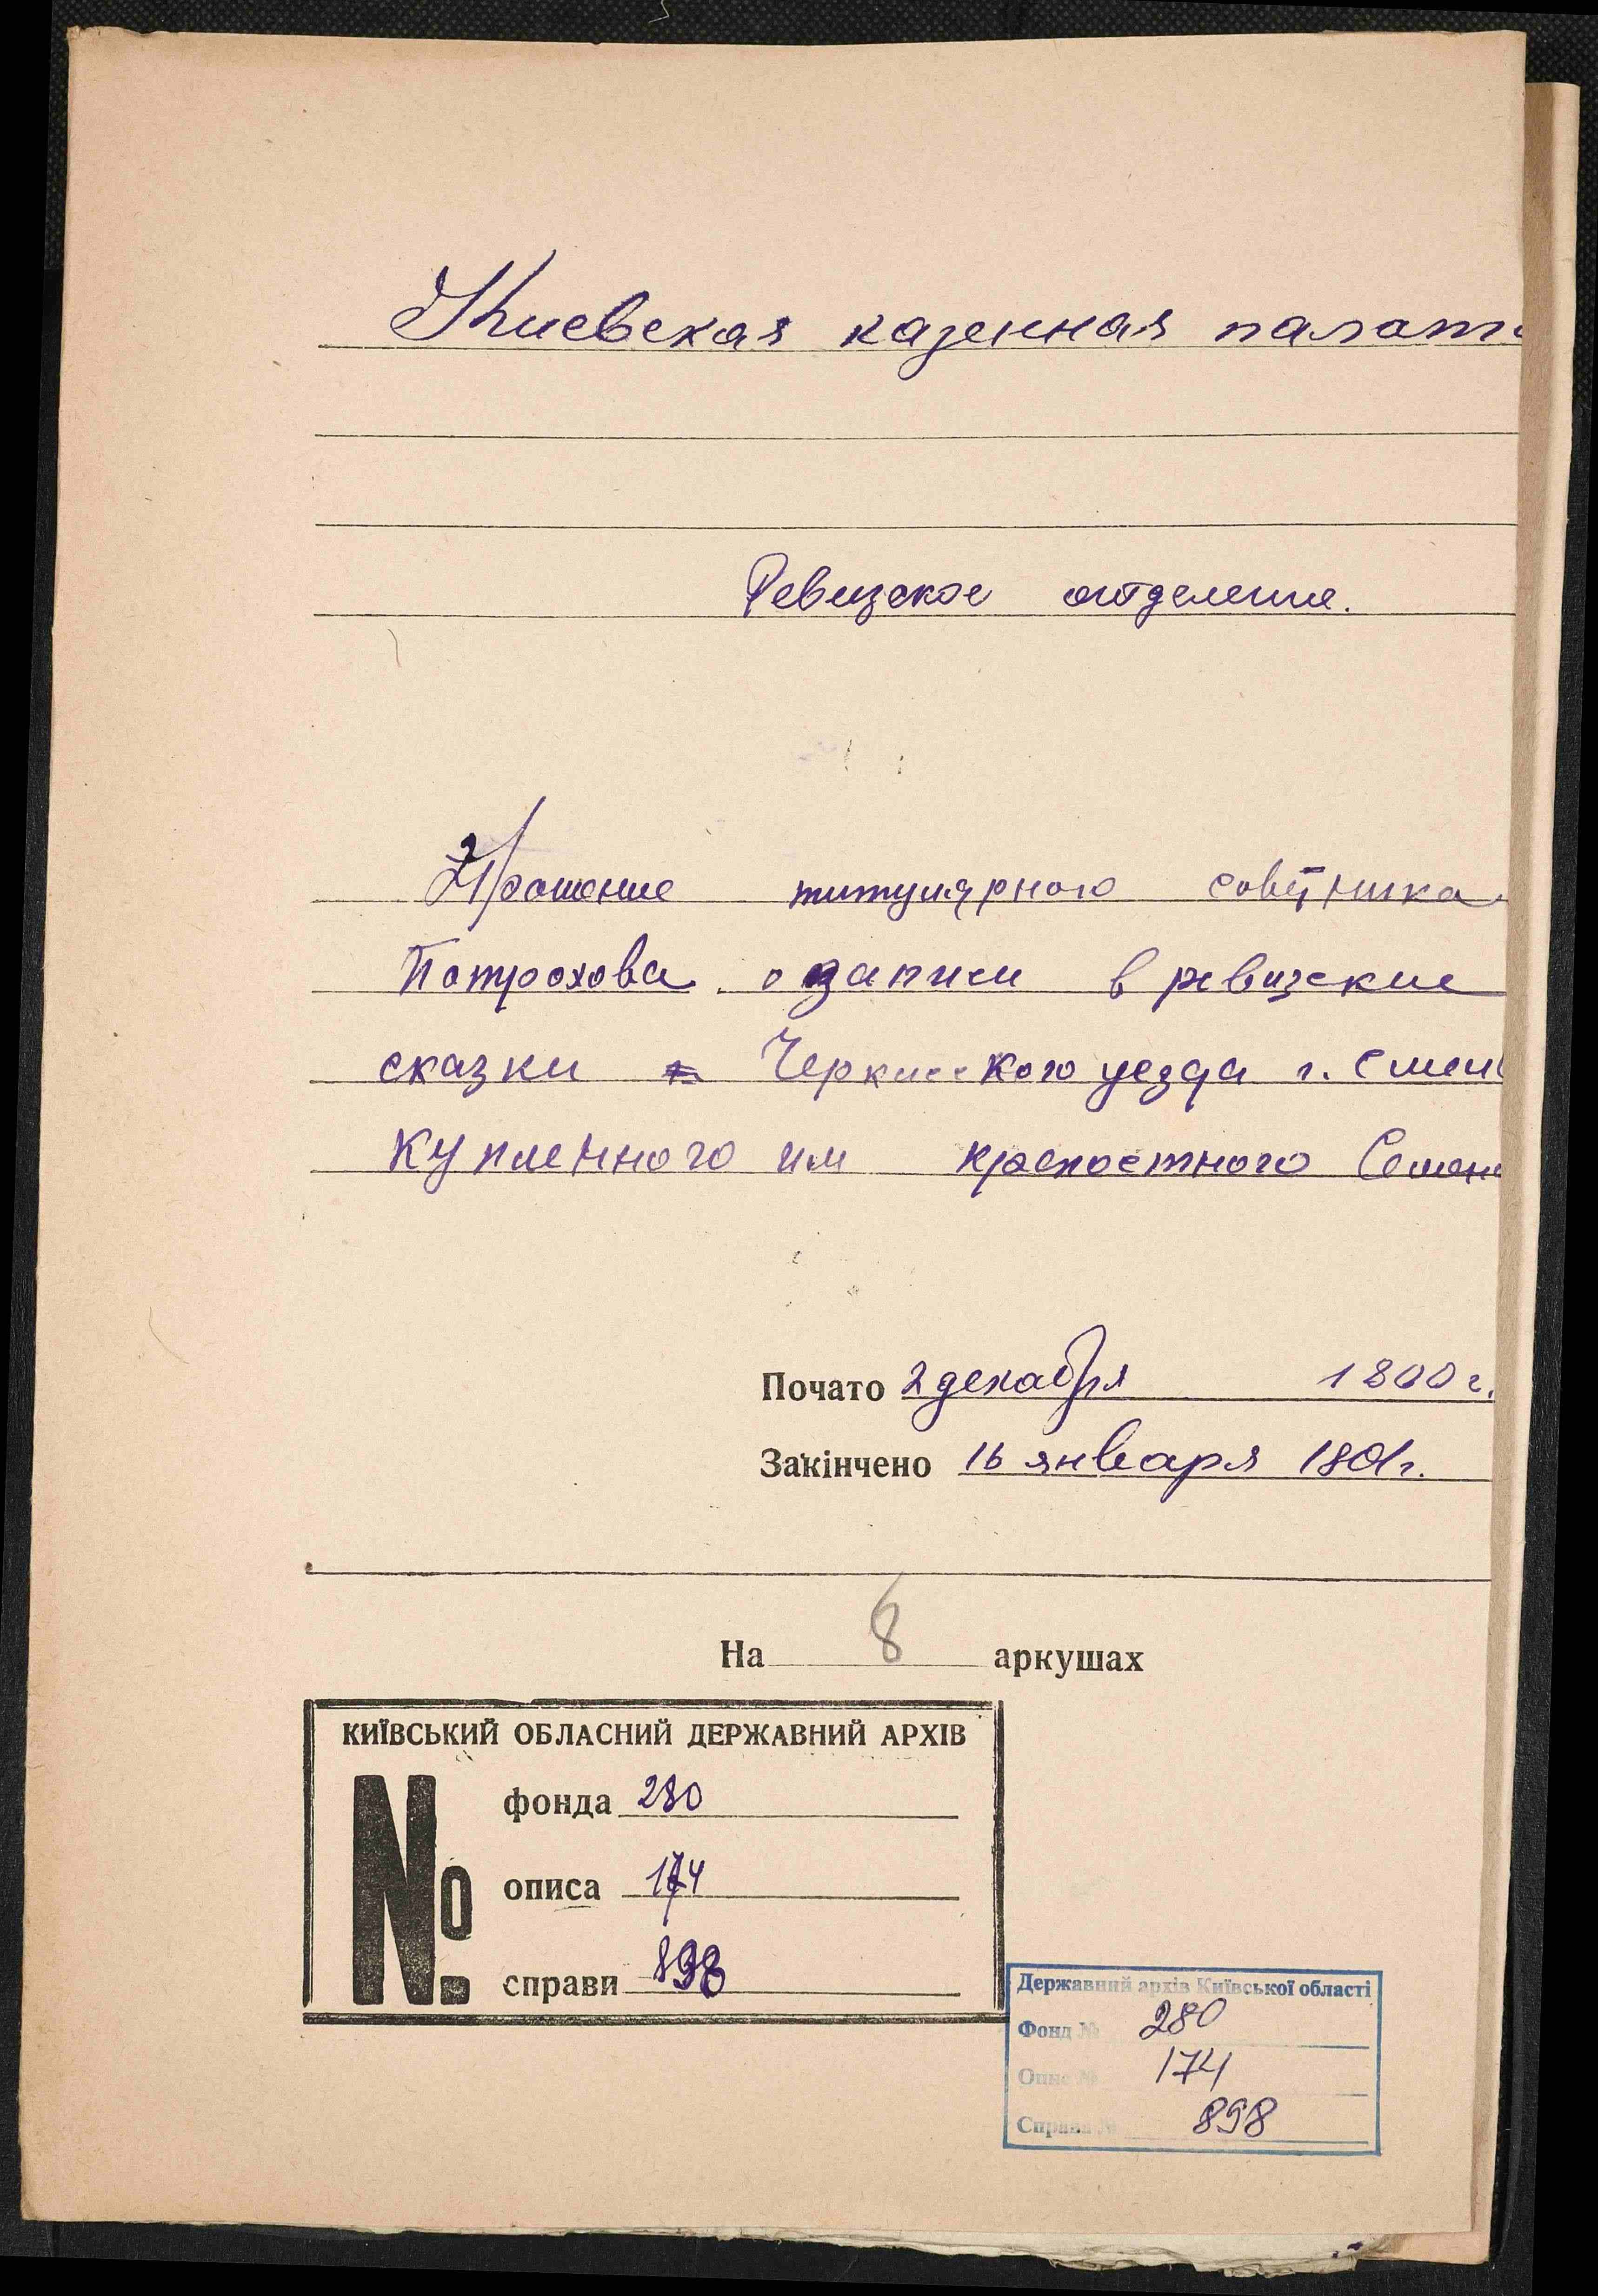 Киевская казенная палат
Ревизское отделение.
Прошение титулярного советника
Потрохова о записи в ревизские
сказки Черкасского уезда г. Смел
купленного им крепостного Семен
Почато 2 декабря 1800 г.
Закінчено 16 января 1801 г.
На 8 аркушах
КИЇВСЬКИЙ ОБЛАСНИЙ ДЕРЖАВНИЙ АРХІВ
№
фонда 280
описа 174
справи 898
Державний архів Київської області
Фонд № 280
Опис № 174
Справа № 898